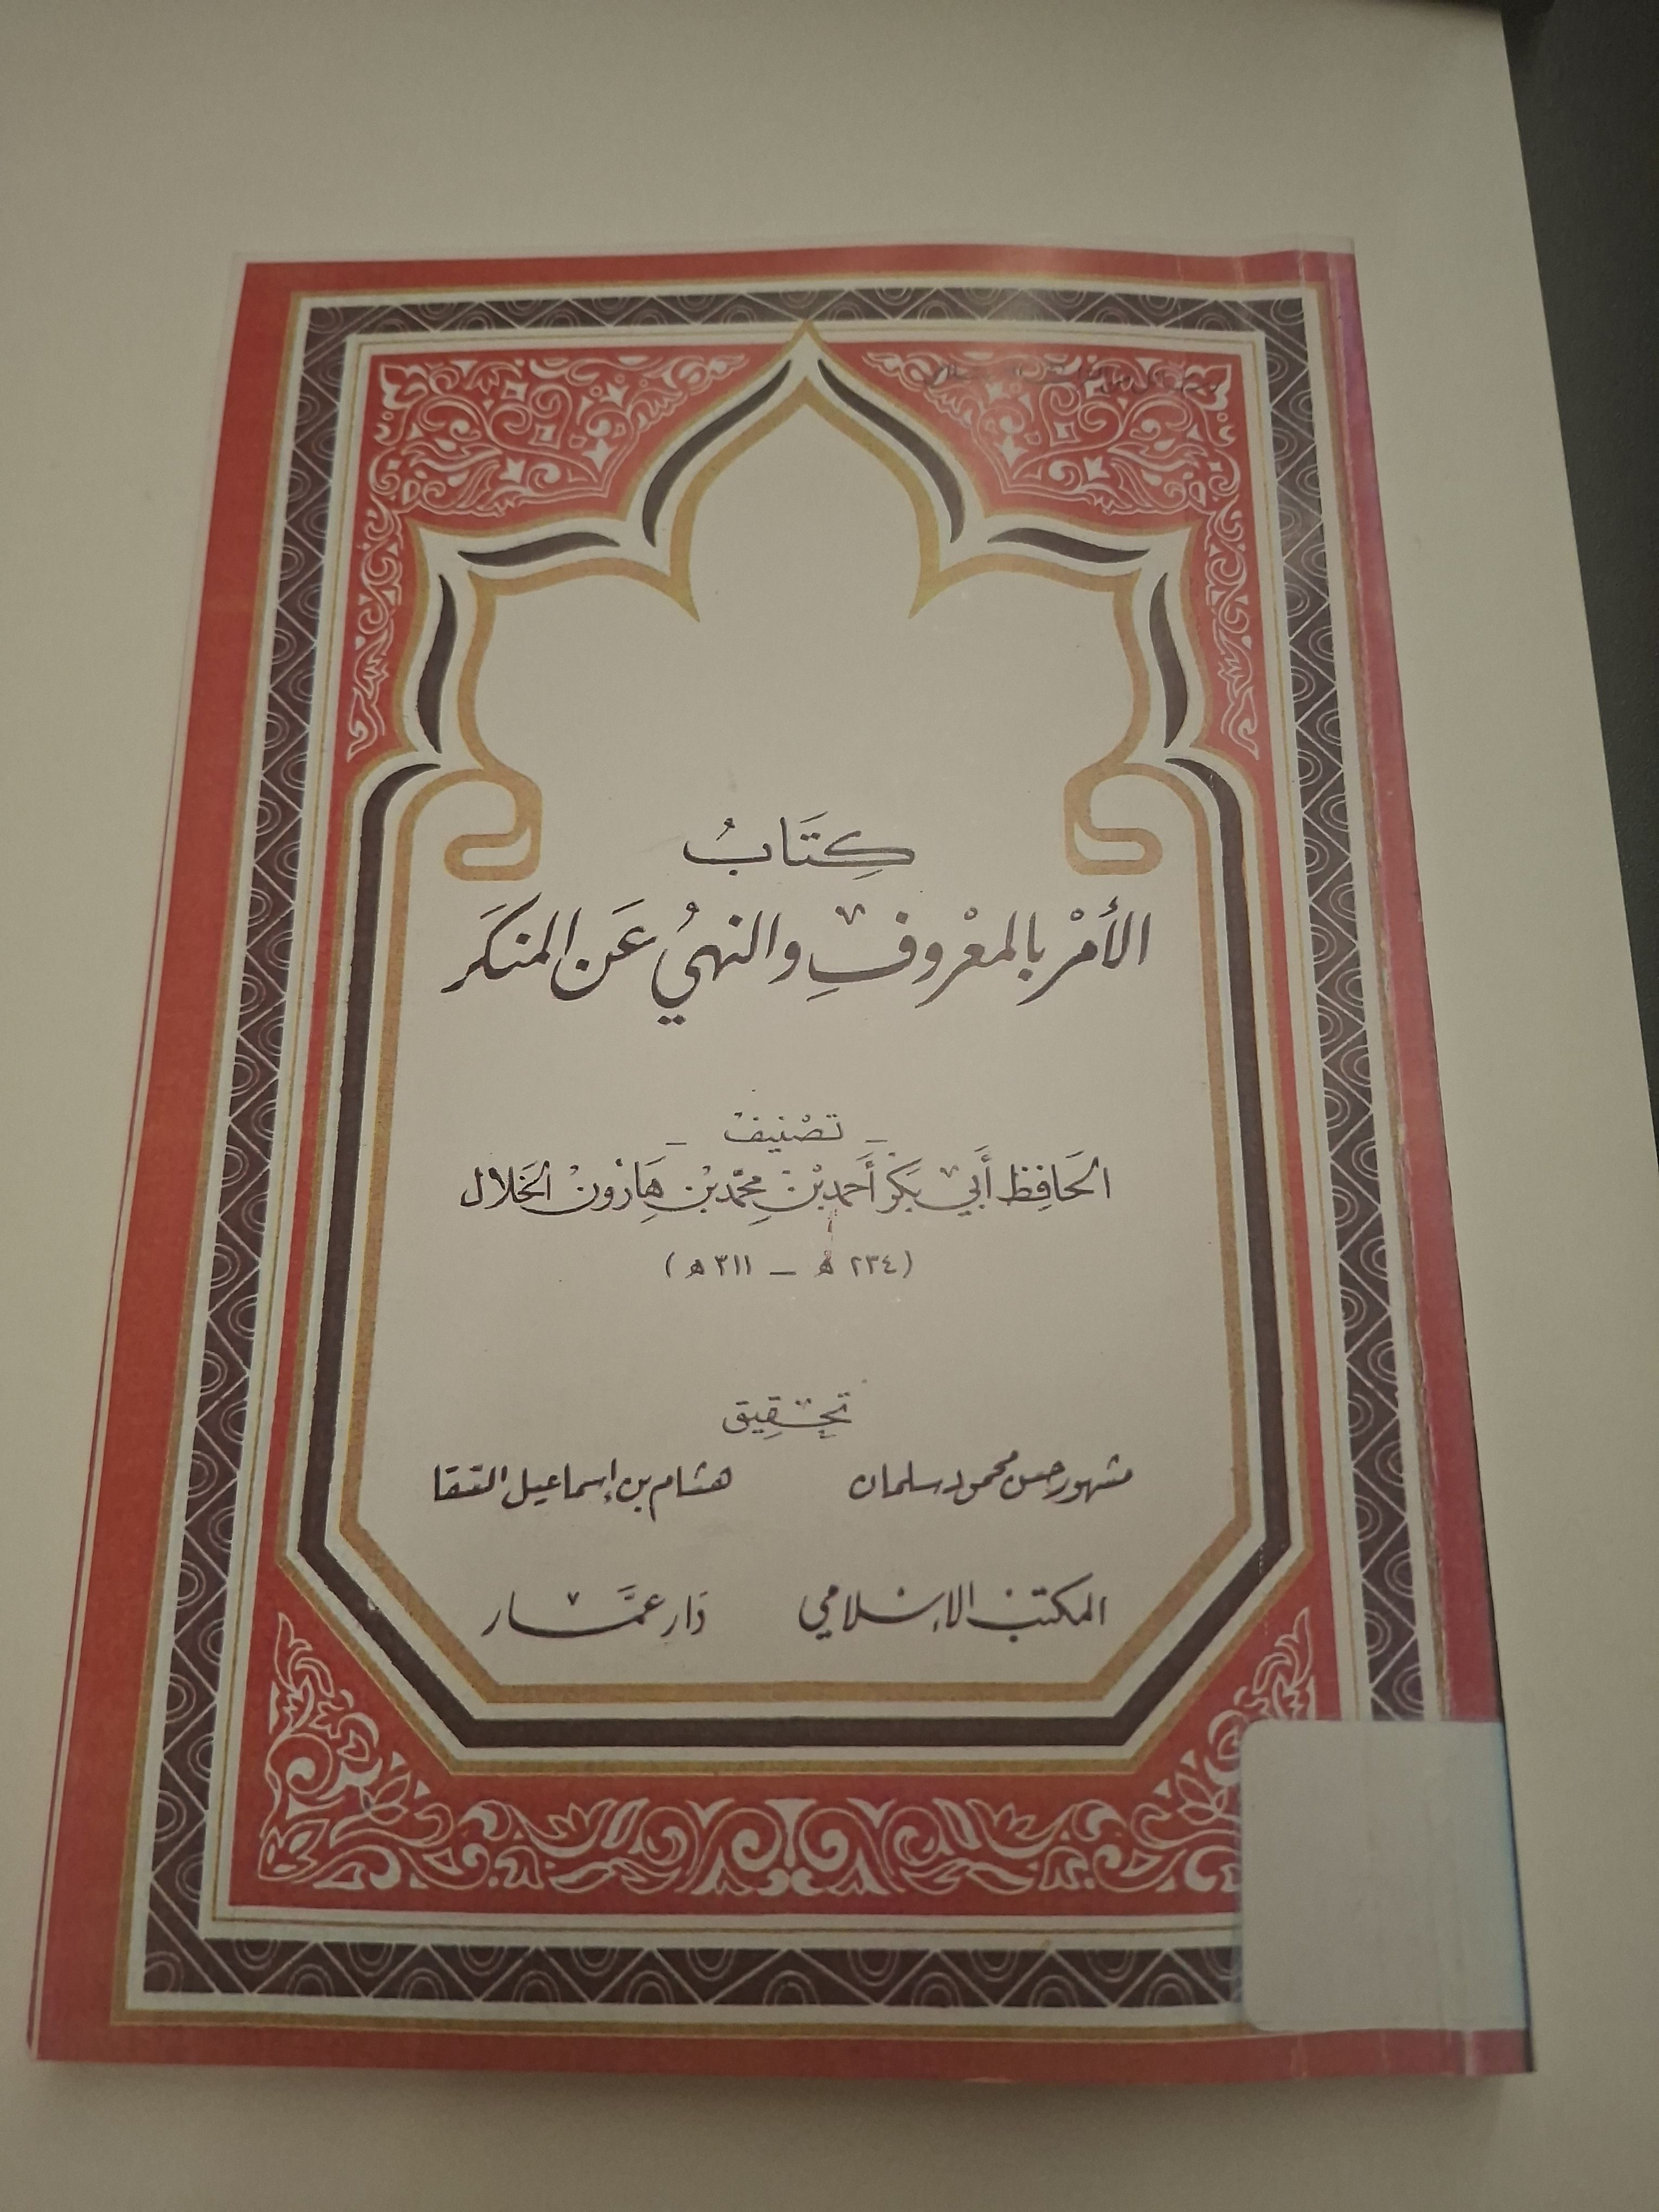 كِتَابُ
الأمْر بالمعْروفِ والنهيُ عَن المنكَر
_ تصْنيف _
الحَافِظ أَبي بَكر أَحمد بْن محمّد بْن هَارُون الخَلال
(٢٣٤ هـ _ ٣١١ هـ)
تحقِيق
مشهور حسن محمود سلمان هشام بن إسماعيل السّقا
المكتب الإسْلامي دَار عمَّار